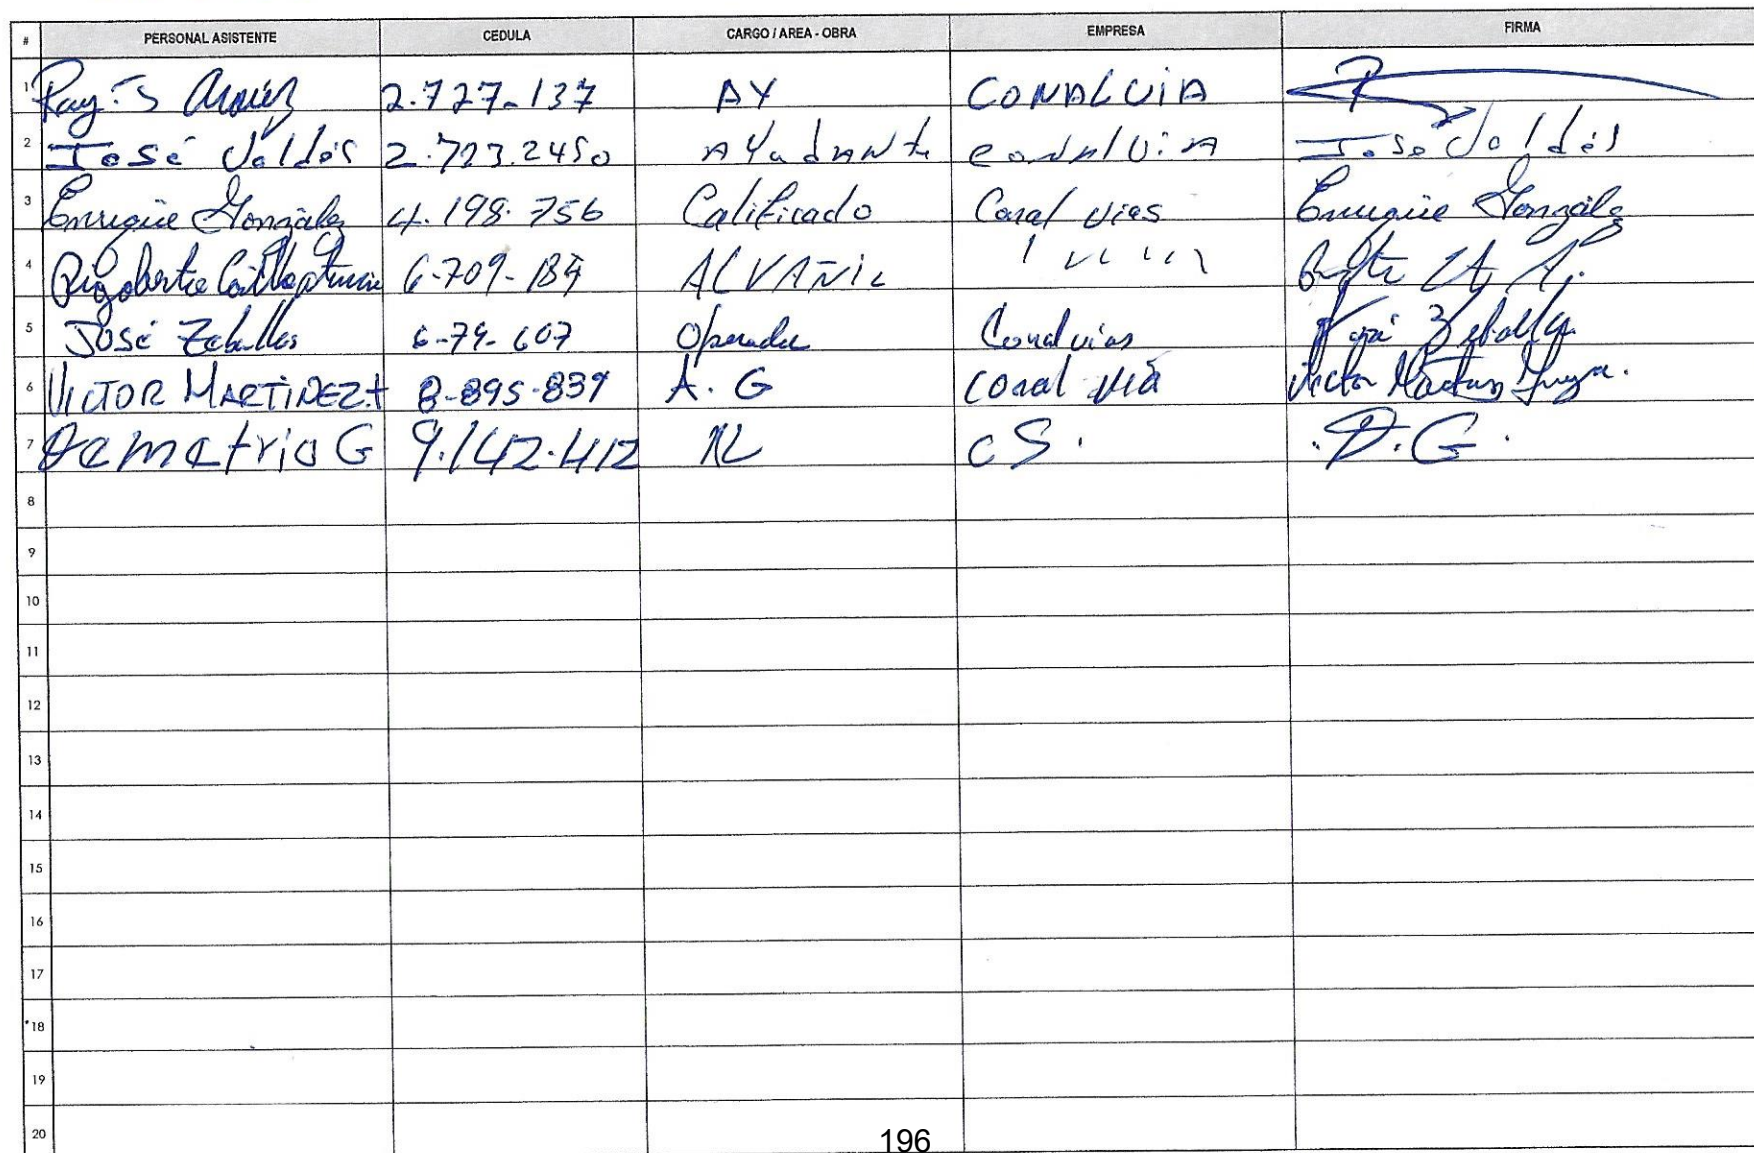 # PERSONAL ASISTENTE CEDULA CARGO / AREA - OBRA EMPRESA FIRMA
1 2.727-137 AY CONALVIA
2 José Valdés 2.723.2450 AYudANte conAlViA José Valdés
3 Enrique González 4.198.756 Calificado Conal vias Enrique González
4 Rigoberto 6-709-184 ALVAÑiL
5 José Zeballos 6-79-607 Operador Conalvias José Zeballos
6 VICTOR MARTiNEZ 8-895-839 A. G conal via Victor
7 Demetrio G 9.142.412 cS. .D.G.
8
9
10
11
12
13
14
15
16
17
18
19
20
196